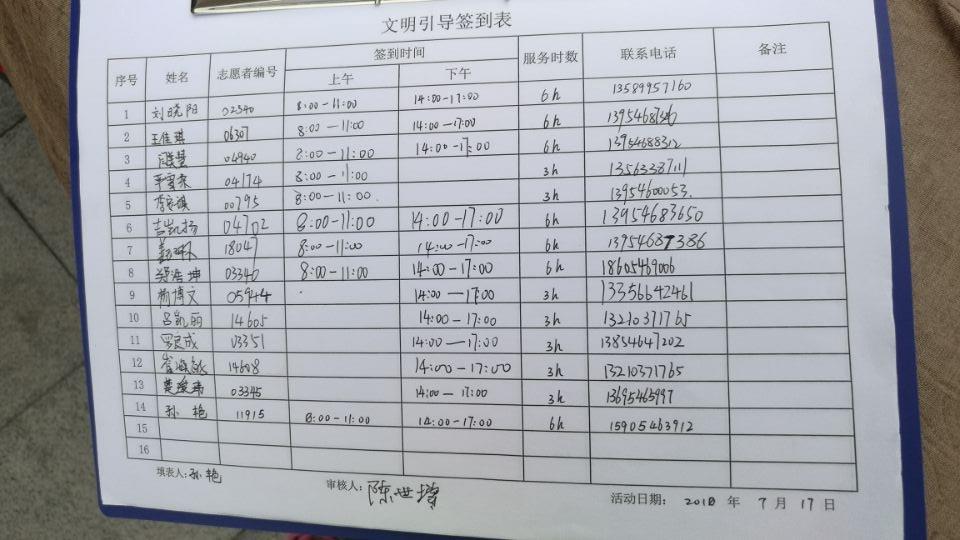 文明引导签到表
序号 姓名 志愿者编号 签到时间 服务时数 联系电话 备注
上午 下午
1 刘晓阳 02340 8:00-11:00 14:00-17:00 6h 13589957160
2 王佳琪 06307 8:00-11:00 14:00-17:00 6h
3 04940 8:00-11:00 14:00-17:00 6h 13954688312
4 04174 8:00-11:00 3h 13563387111
5 李家祺 00795 8:00-11:00 3h 13954600053
6 吉凯扬 04702 8:00-11:00 14:00-17:00 6h 13954683650
7 18047 8:00-11:00 14:00-17:00 6h 13954687386
8 03340 8:00-11:00 14:00-17:00 6h 18605469006
9 杨博文 05944 14:00-17:00 3h 13356642461
10 吕凯丽 14605 14:00-17:00 3h 13210371765
11 03351 14:00-17:00 3h 13854647202
12 14608 14:00-17:00 3h 13210371765
13 03345 14:00-17:00 3h 13695465997
14 孙艳 11915 8:00-11:00 14:00-17:00 6h 15905463912
15
16
填表人:孙艳 审核人: 活动日期: 2018 年 7 月 17 日